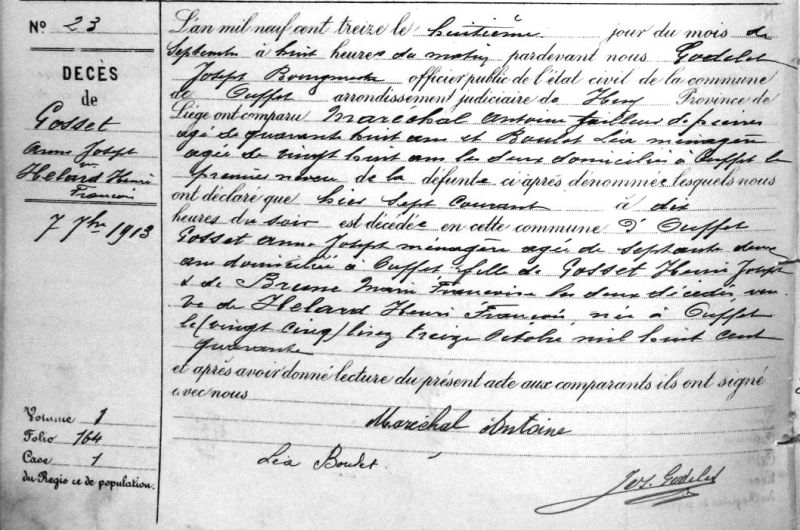 No 23
DECÈS
de
Gosset
Anne Joseph
Ve
Helard Henri
François
7 7bre 1913
Volume 1
Folio 164
Case 1
du Regis re de population.
L'an mil neuf cent treize le huitième jour du mois de
Septembre à huit heures du matin pardevant nous Godelet
Joseph Bourgmestre officier public de l'état civil de la commune
de Ouffet arrondissement judiciaire de Huy Province de
Liège ont comparu Maréchal Antoine tailleur de pierres
âgé de quarante huit ans et Boulet Léa ménagère
âgée de vingt huit ans les deux domiciliés à Ouffet le
premier neveu de la défunte ci après dénommée lesquels nous
ont déclaré que hier sept courant à dix
heures du soir est décédée en cette commune d'Ouffet
Gosset Anne Joseph ménagère agée de septante deux
ans domiciliée à Ouffet fille de Gosset Henri Joseph
& de Brune Marie Françoise les deux décédés, veu-
ve de Helard Henri François, née à Ouffet
le (vingt cinq) lisez treize Octobre mil huit cent
quarante
et après avoir donné lecture du présent acte aux comparants ils ont signé
avec nous
Maréchal Antoine
Léa Boulet
Jos. Godelet